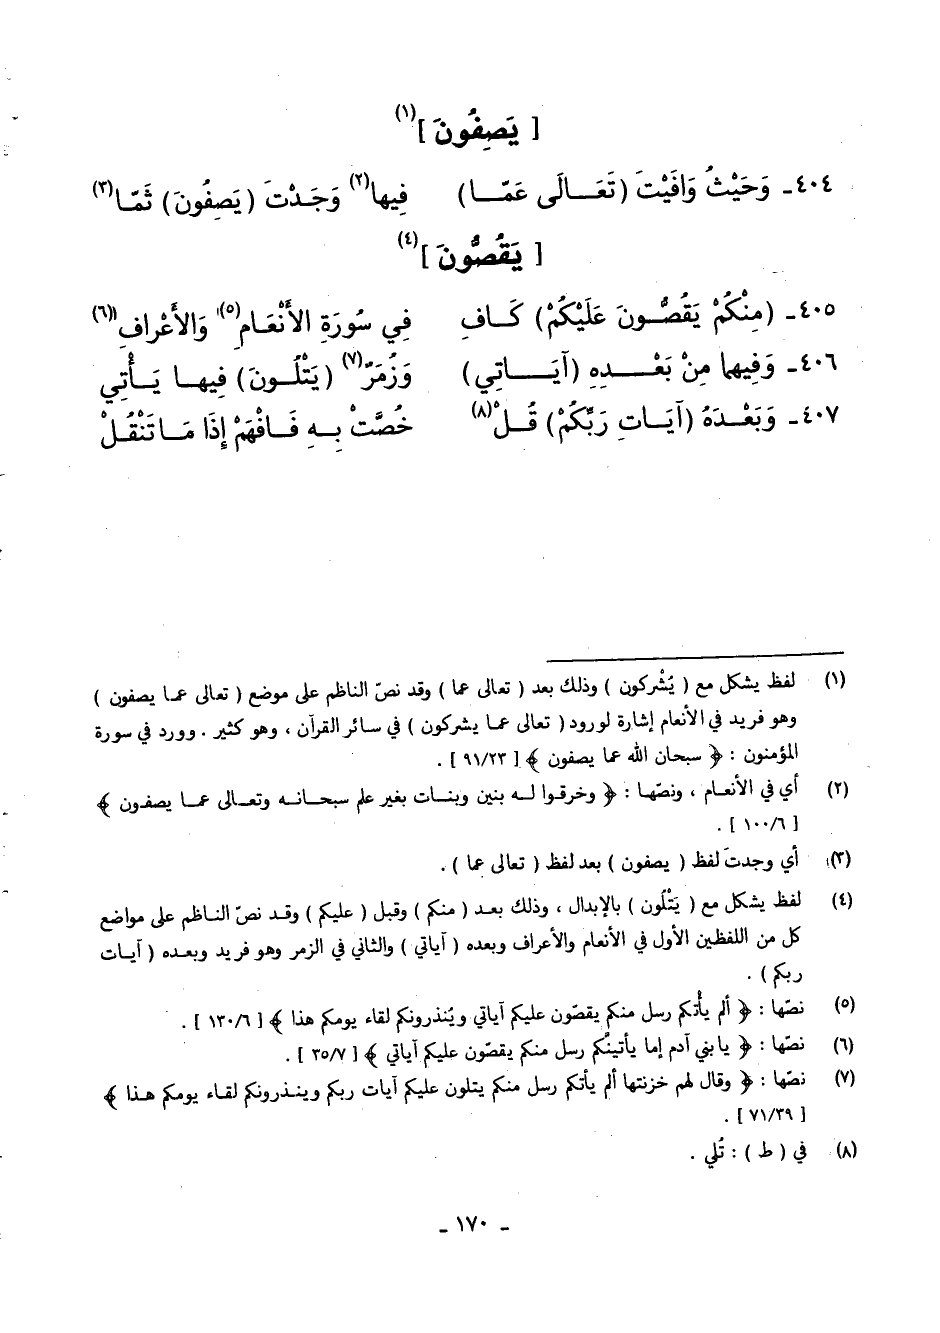 [ يَصِفُونَ ](١)
٤٠٤ـ وَحَيْثُ وَافَيْتَ (تَعَـالَى عَمَّـا) فِيها(٢) وَجَـدْتَ (يَصِفُونَ) ثَمَّـا(٣)
[ يَقُصُّونَ ](٤)
٤٠٥ـ (مِنْكُمْ يَقُصُّـونَ عَلَيْكُمْ) كَـافِ فِي سُورَةِ الأَنْعَـامِ(٥) وَالأَعْرافِ(٦)
٤٠٦ـ وَفِيهما مِنْ بَعْـدِهِ (آيَـاتِي) وَزُمَرٌ(٧) (يَتْلُـونَ) فِيهـا يَـأْتِي
٤٠٧ـ وَبَعْـدَهُ (آيَـاتِ رَبِّكُمْ) قُـلْ(٨) خُصَّتْ بِـهِ فَـافْهَمْ إِذَا مَـا تَنْقُـلْ
(١) لفظ يشكل مع ( يُشْركون ) وذلك بعد ( تعالى عما ) وقد نصّ الناظم على موضع ( تعالى عمـا يصفون )
وهو فريد في الأنعام إشارة لورود ( تعالى عمـا يشركون ) في سائر القرآن ، وهو كثير . وورد في سورة
المؤمنون : ﴿ سبحان الله عما يصفون ﴾ [ ٩١/٢٣ ] .
(٢) أي في الأنعـام ، ونصّهـا : ﴿ وخرقـوا لـه بنين وبنـات بغير علم سبحـانـه وتعـالى عمـا يصفـون ﴾
[ ١٠٠/٦ ] .
(٣) أي وجدتَ لفظ ( يصفون ) بعد لفظ ( تعالى عما ) .
(٤) لفظ يشكل مع ( يَتْلُون ) بالإبدال ، وذلك بعـد ( منكم ) وقبل ( عليكم ) وقـد نصّ النـاظم على مواضع
كل من اللفظين الأول في الأنعام والأعراف وبعده ( آياتي ) والثاني في الزمر وهو فريد وبعـده ( آيـات
ربكم ) .
(٥) نصّها : ﴿ ألم يأتكم رسل منكم يقصّون عليكم آياتي ويُنذرونكم لقاء يومكم هذا ﴾ [ ١٣٠/٦ ] .
(٦) نصّها : ﴿ يا بني آدم إما يأتينَّكم رسل منكم يقصّون عليكم آياتي ﴾ [ ٣٥/٧ ] .
(٧) نصّها : ﴿ وقال لهم خزنتها ألم يأتكم رسل منكم يتلون عليكم آيات ربكم وينـذرونكم لقـاء يومكم هـذا ﴾
[ ٧١/٣٩ ] .
(٨) في ( ط ) : تُلي .
ـ ١٧٠ ـ